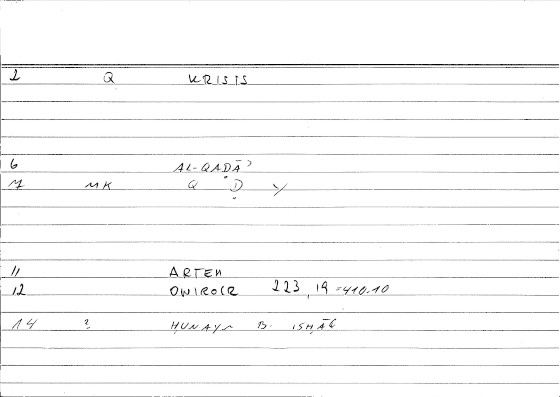 2 Q KRISIS
6 AL-QAḌĀʾ
7 MK Q Ḍ Y
11 ARTEM
12 ONIROCR 223, 19 = 410.10
14 ? ḤUNAYN B. ISḤĀQ